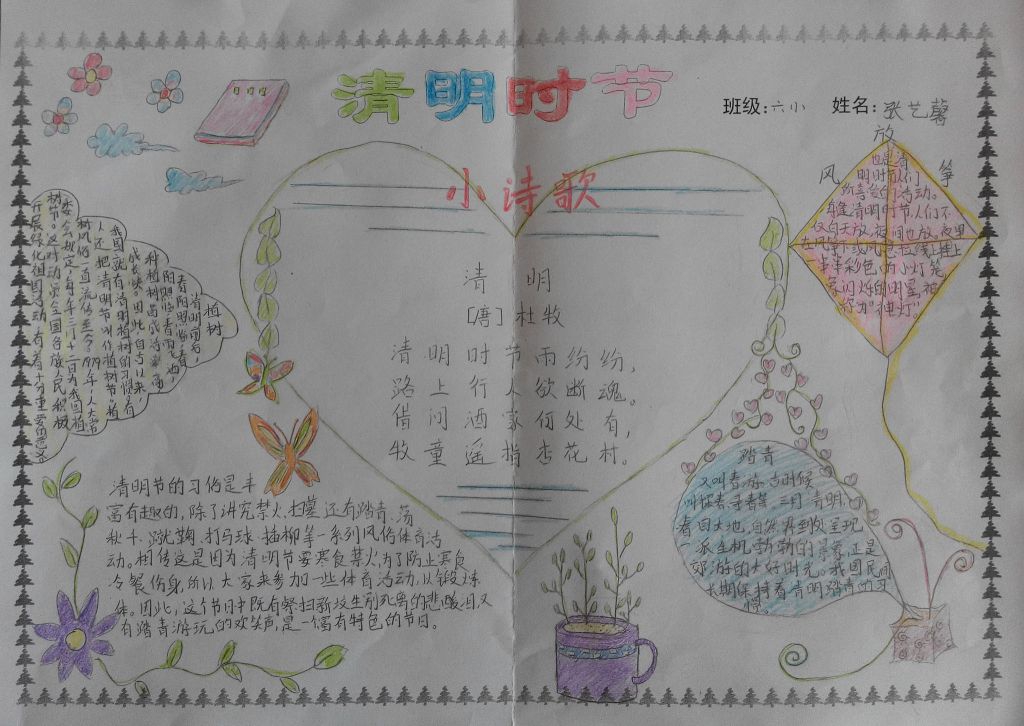 清明时节
班级:六小 姓名:张艺馨
小诗歌
清 明
[唐] 杜牧
清明时节雨纷纷,
路上行人欲断魂。
借问酒家何处有,
牧童遥指杏花村。
植树
清明前后,
春阳照临,春
阳照临,春雨飞洒,
种植树苗成活率高,
成长快。因此,自古以来,
我国就有清明植树的习惯。有
人还把清明节叫作植树节。植
树风俗一直流传至今。1979年,人大常
委会规定,每年三月十二日为我国植
树节。这对动员全国各族人民积极
开展绿化祖国活动,有着十分重要的意义
放
风 筝
也是清
明时节人们
所喜爱的活动。
每逢清明时节,人们不
仅白天放,夜间也放。夜里
在风筝下或风稳拉线上挂上
一串串彩色的小灯笼
象闪烁的明星,被
称为"神灯"。
踏青
又叫春游。古时候
叫探春、寻春等。三月清明,
春回大地,自然界到处呈现
一派生机勃勃的景象,正是
郊游的大好时光。我国民间
长期保持着清明踏青的习
惯。
清明节的习俗是丰
富有趣的,除了讲究禁火、扫墓,还有踏青、荡
秋千、蹴鞠、打马球、插柳等一系列风俗体育活
动。相传这是因为清明节要寒食禁火,为了防止寒食
冷餐伤身,所以大家来参加一些体育活动,以锻炼
体。因此,这个节日中既有祭扫新坟生别死离的悲酸泪,又
有踏青游玩的欢笑声,是一个富有特色的节日。